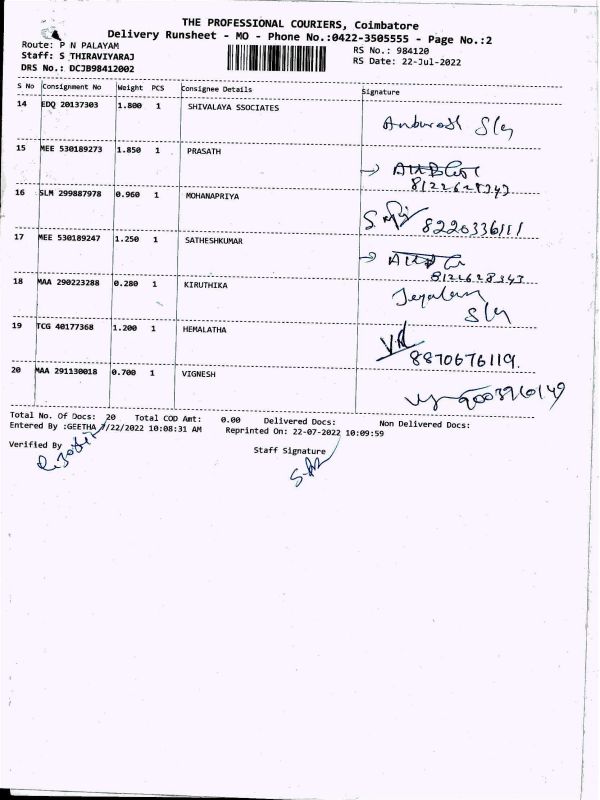 THE PROFESSIONAL COURIERS, Coimbatore
Delivery Runsheet - MO - Phone No.:0422-3505555 - Page No.:2
Route: P N PALAYAM
RS No.: 984120
Staff: S THIRAVIYARAJ
RS Date: 22-Jul-2022
DRS No.: DCJB98412002
S No Consignment No Weight PCS Consignee Details Signature
14 EDQ 20137303 1.800 1 SHIVALAYA SSOCIATES
15 MEE 530189273 1.850 1 PRASATH
8122628343
16 SLM 299887978 0.960 1 MOHANAPRIYA
8220336111
17 MEE 530189247 1.250 1 SATHESHKUMAR
8122628343
18 MAA 290223288 0.280 1 KIRUTHIKA
19 TCG 40177368 1.200 1 HEMALATHA
8870676119.
20 MAA 291130018 0.700 1 VIGNESH
9003960149
Total No. Of Docs: 20 Total COD Amt: 0.00 Delivered Docs: Non Delivered Docs:
Entered By :GEETHA 7/22/2022 10:08:31 AM Reprinted On: 22-07-2022 10:09:59
Verified By
Staff Signature